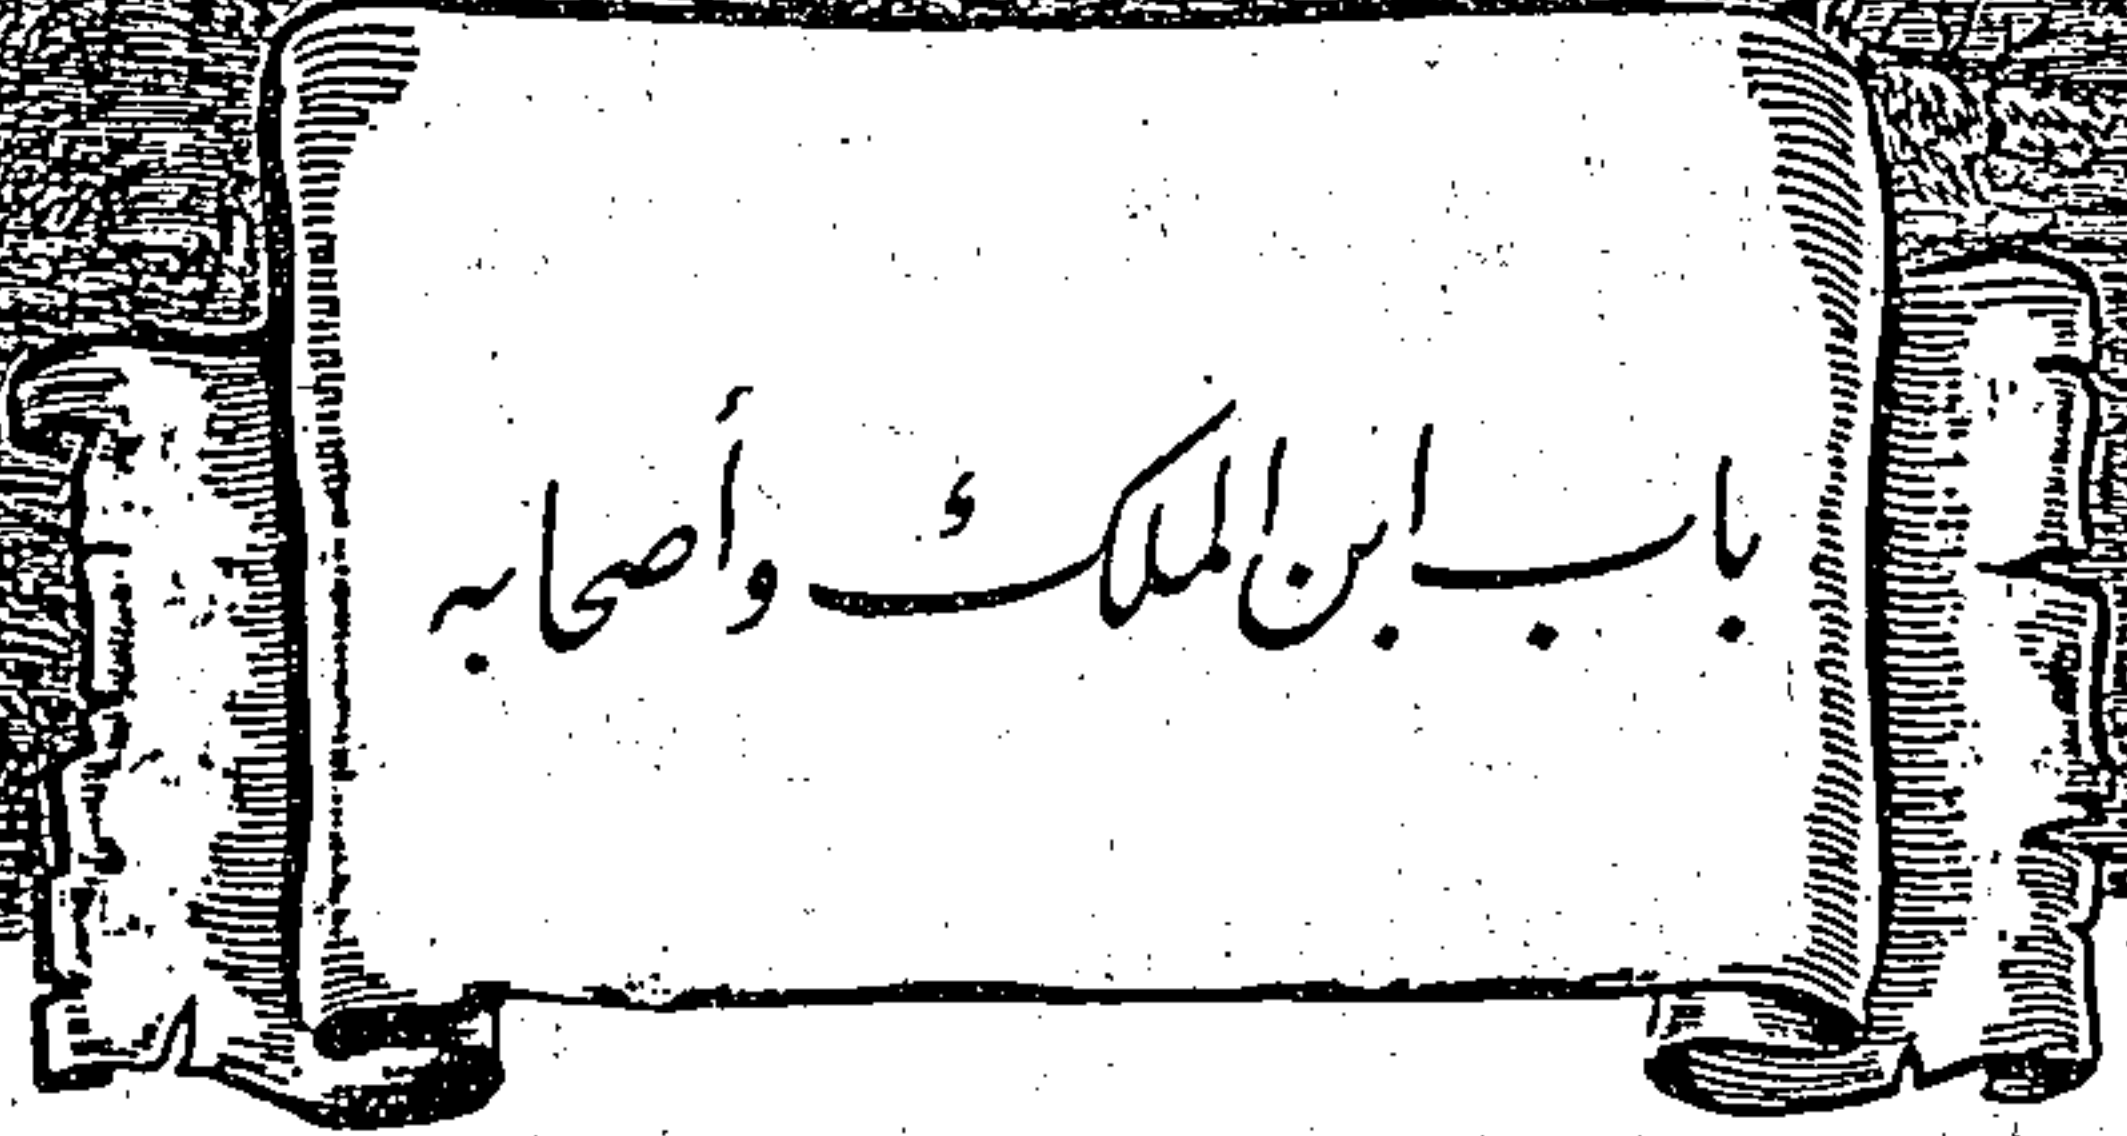 باب ابن الملك وأصحابه